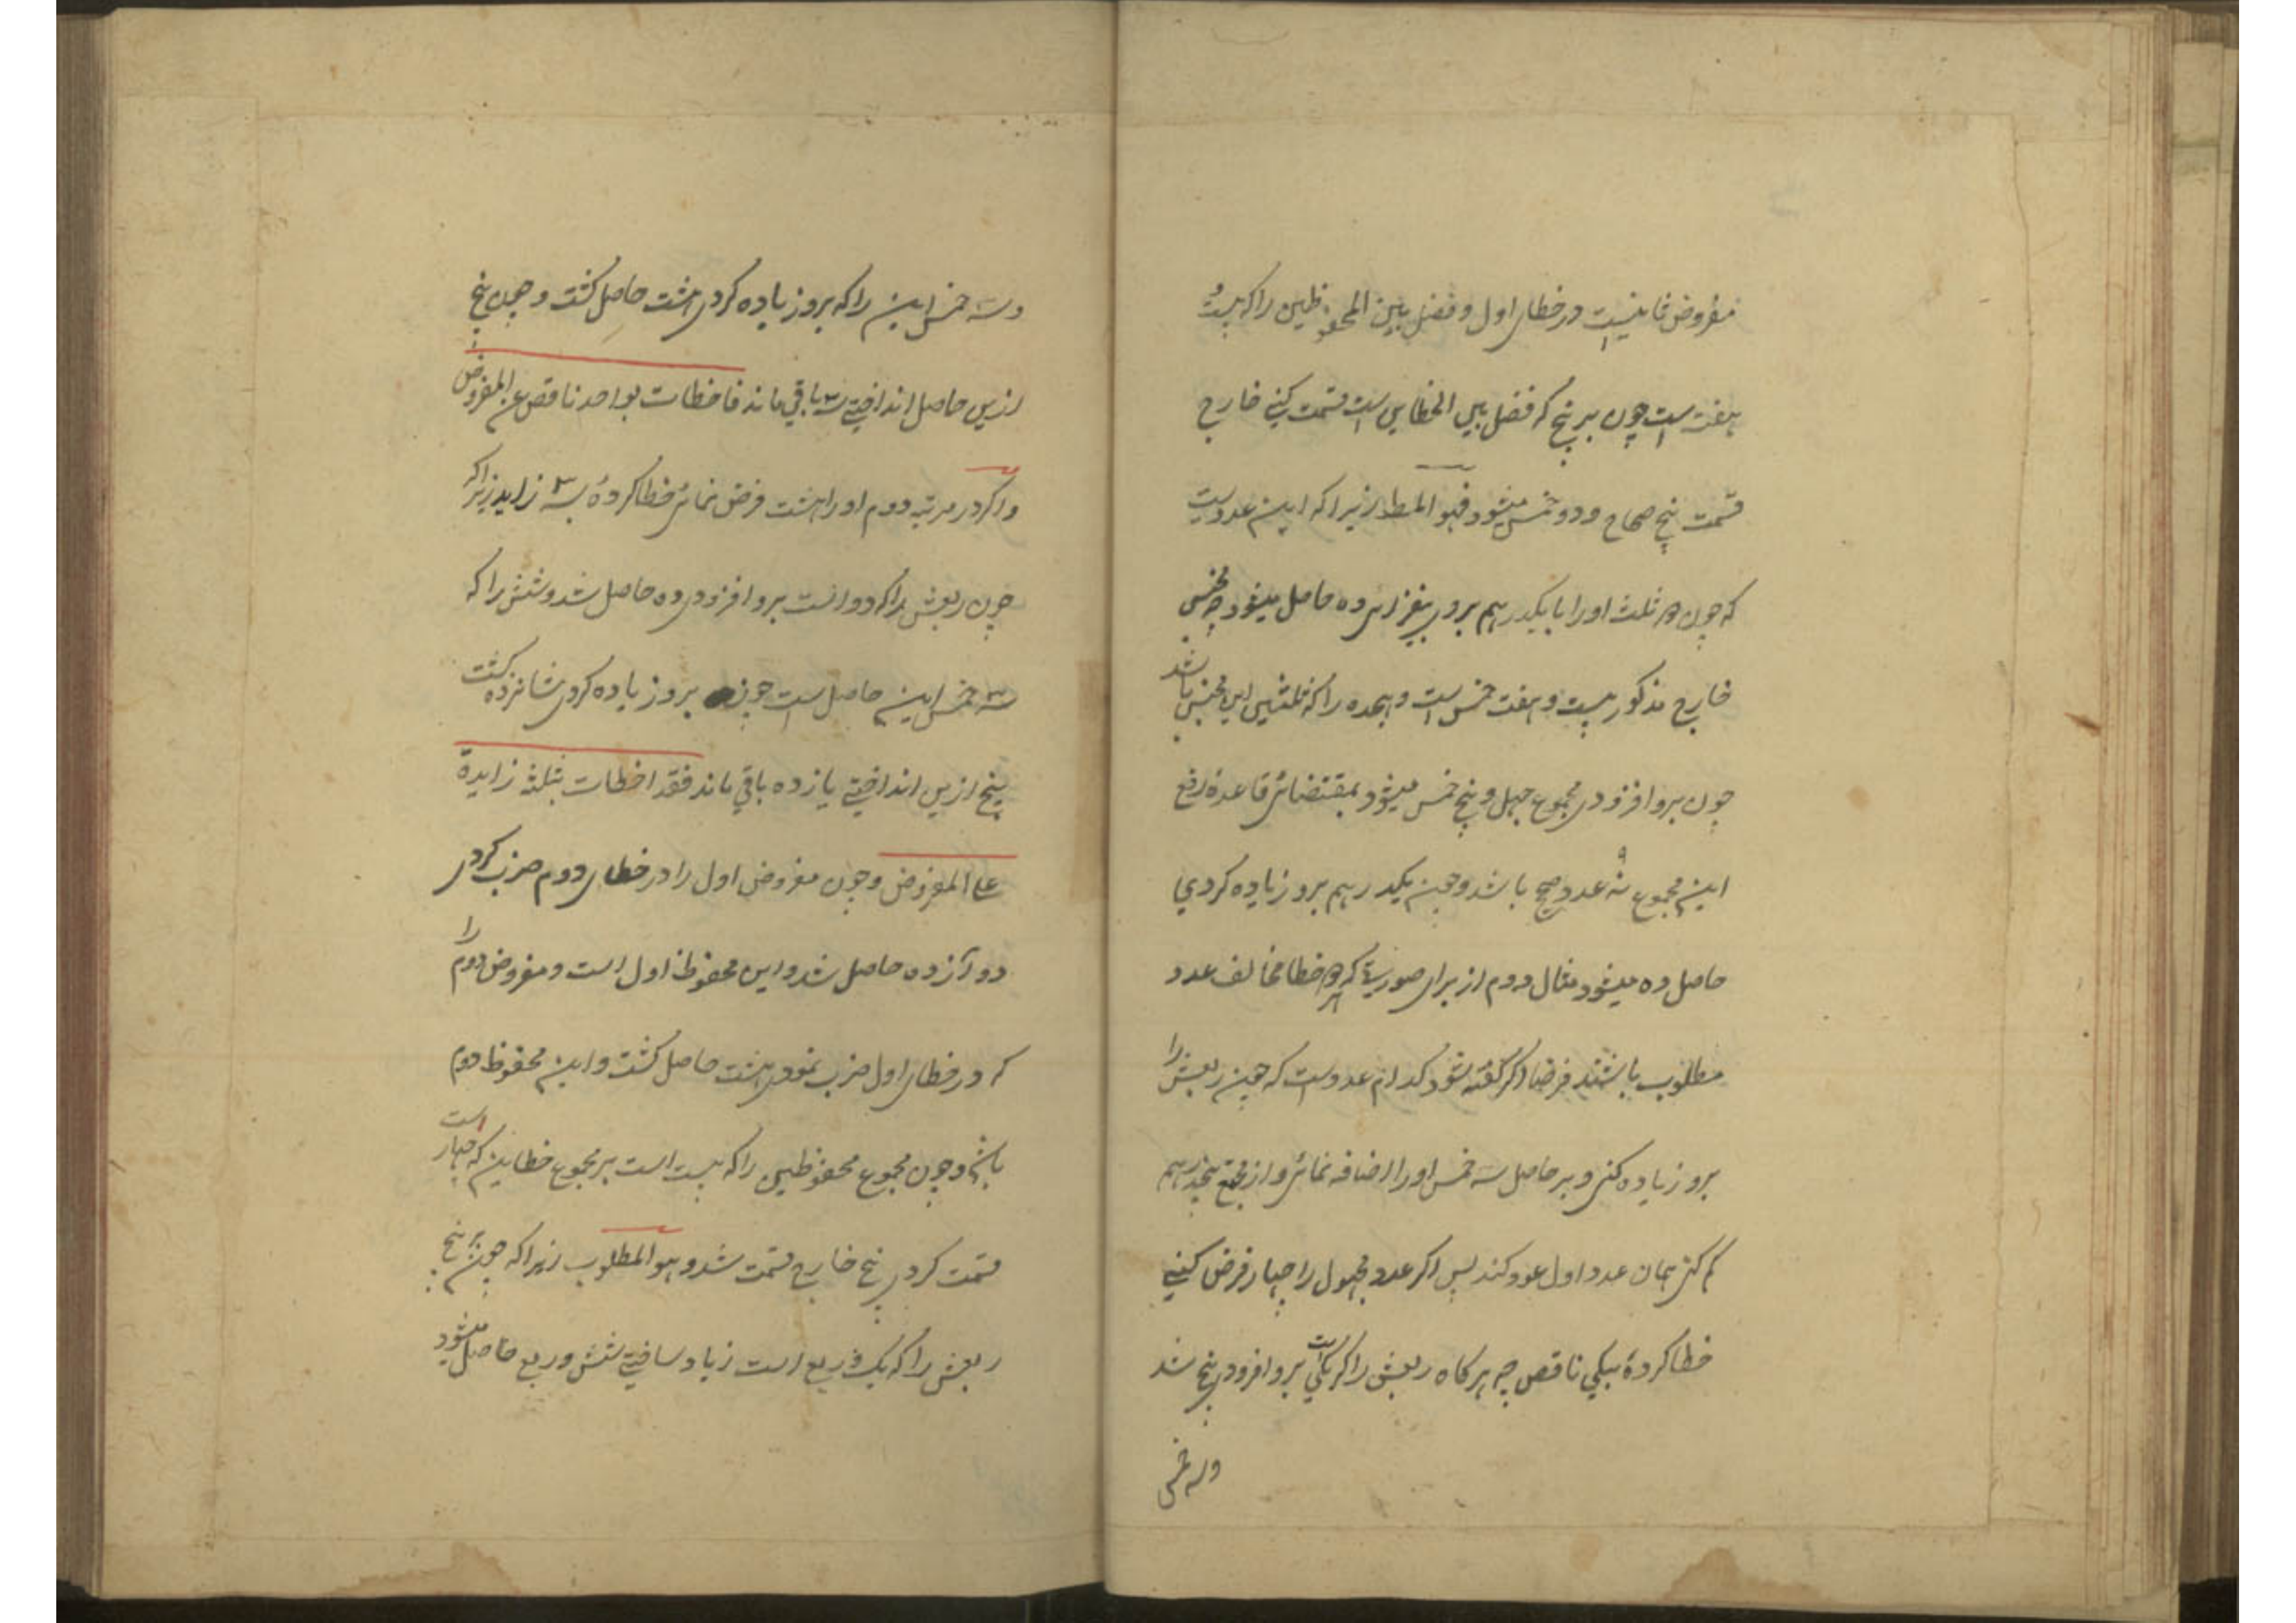 مفروض ثانیست در خطای اول و فضل بین المحفوظین را که بیست و
هفت است چون بر پنج که فضل بین الخطایین است قسمت کنی خارج
قسمت پنج صحاح و دو خمس میشود فهو المط زیرا که این عددیست
که چون دو ثلث او را با یکدرهم برو بیفزای ده حاصل میشود چه مجنس
خارج مذکور بیست و هفت خمس است و هجده را که ثلثین این مجنس باشد
چون برو افزودی مجموع چهل و پنج خمس میشود بمقتضای قاعده رفع
این مجموع نه عدد صحیح باشد و چون یکدرهم برو زیاده کردی
حاصل ده میشود مثال دوم از برای صورتی که هر دو خطا مخالف عدد
مطلوب باشند فرضا اگر گفته شود کدام عدد است که چون ربعش را
برو زیاده کنی و بر حاصل سه خمس او را اضافه نمائی و از مجتمع پنجدرهم
کم کنی همان عدد اول عود کند پس اگر عدد مجهول را چهار فرض کنی
خطا کرده بیکی ناقص چه هرگاه ربعش را که یکی است برو افزودی پنج شد
و سه خمس
و سه خمس این را که برو زیاده کردی هشت حاصل گشت و چون پنج
ازین حاصل انداختی سه باقی ماند فاخطات بواحد ناقص عن المفروض
و اگر در مرتبه دوم او را هشت فرض نمائی خطا کرده بسه زاید زیرا که
چون ربعش را که دو است برو افزودی ده حاصل شد و شش را که
سه خمس این حاصل است چون برو زیاده کردی شانزده گشت
پنج ازین انداختی یازده باقی ماند فقد اخطات بثلثة زایدة
علی المفروض و چون مفروض اول را در خطای دوم ضرب کردی
دوآزده حاصل شد و این محفوظ اول است و مفروض دوم را
که در خطای اول ضرب نمودی هشت حاصل گشت و این محفوظ دوم
باشد و چون مجموع محفوظین را که بیست است بر مجموع خطایین که چهار است
قسمت کردی پنج خارج قسمت شد و هو المطلوب زیرا که چون بر پنج
ربعش را که یک و ربع است زیاد ساختی شش و ربع حاصل میشود